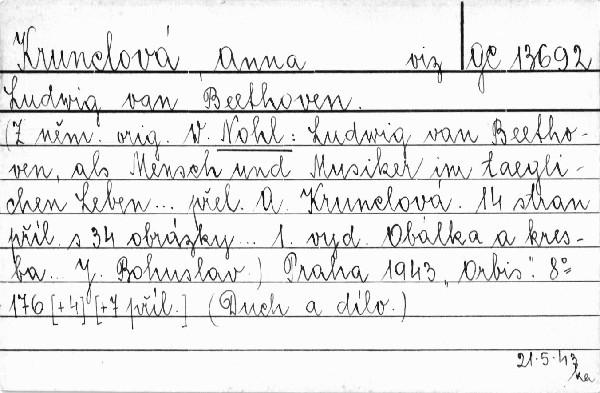 Krunclová Anna viz gc 13692
Ludwig van Beethoven.
(Z něm. orig. W. Nohl: Ludwig van Beetho-
ven, als Mensch und Musiker im taegli-
chen Leben... přel. A. Krunclová. 14 stran
příl. s 34 obrázky... 1. vyd. Obálka a kres-
ba... J. Bohuslav.) Praha 1943 „Orbis“. 8°
176 [+4] [+7 příl.] (Duch a dílo.)
21.5.43
ka